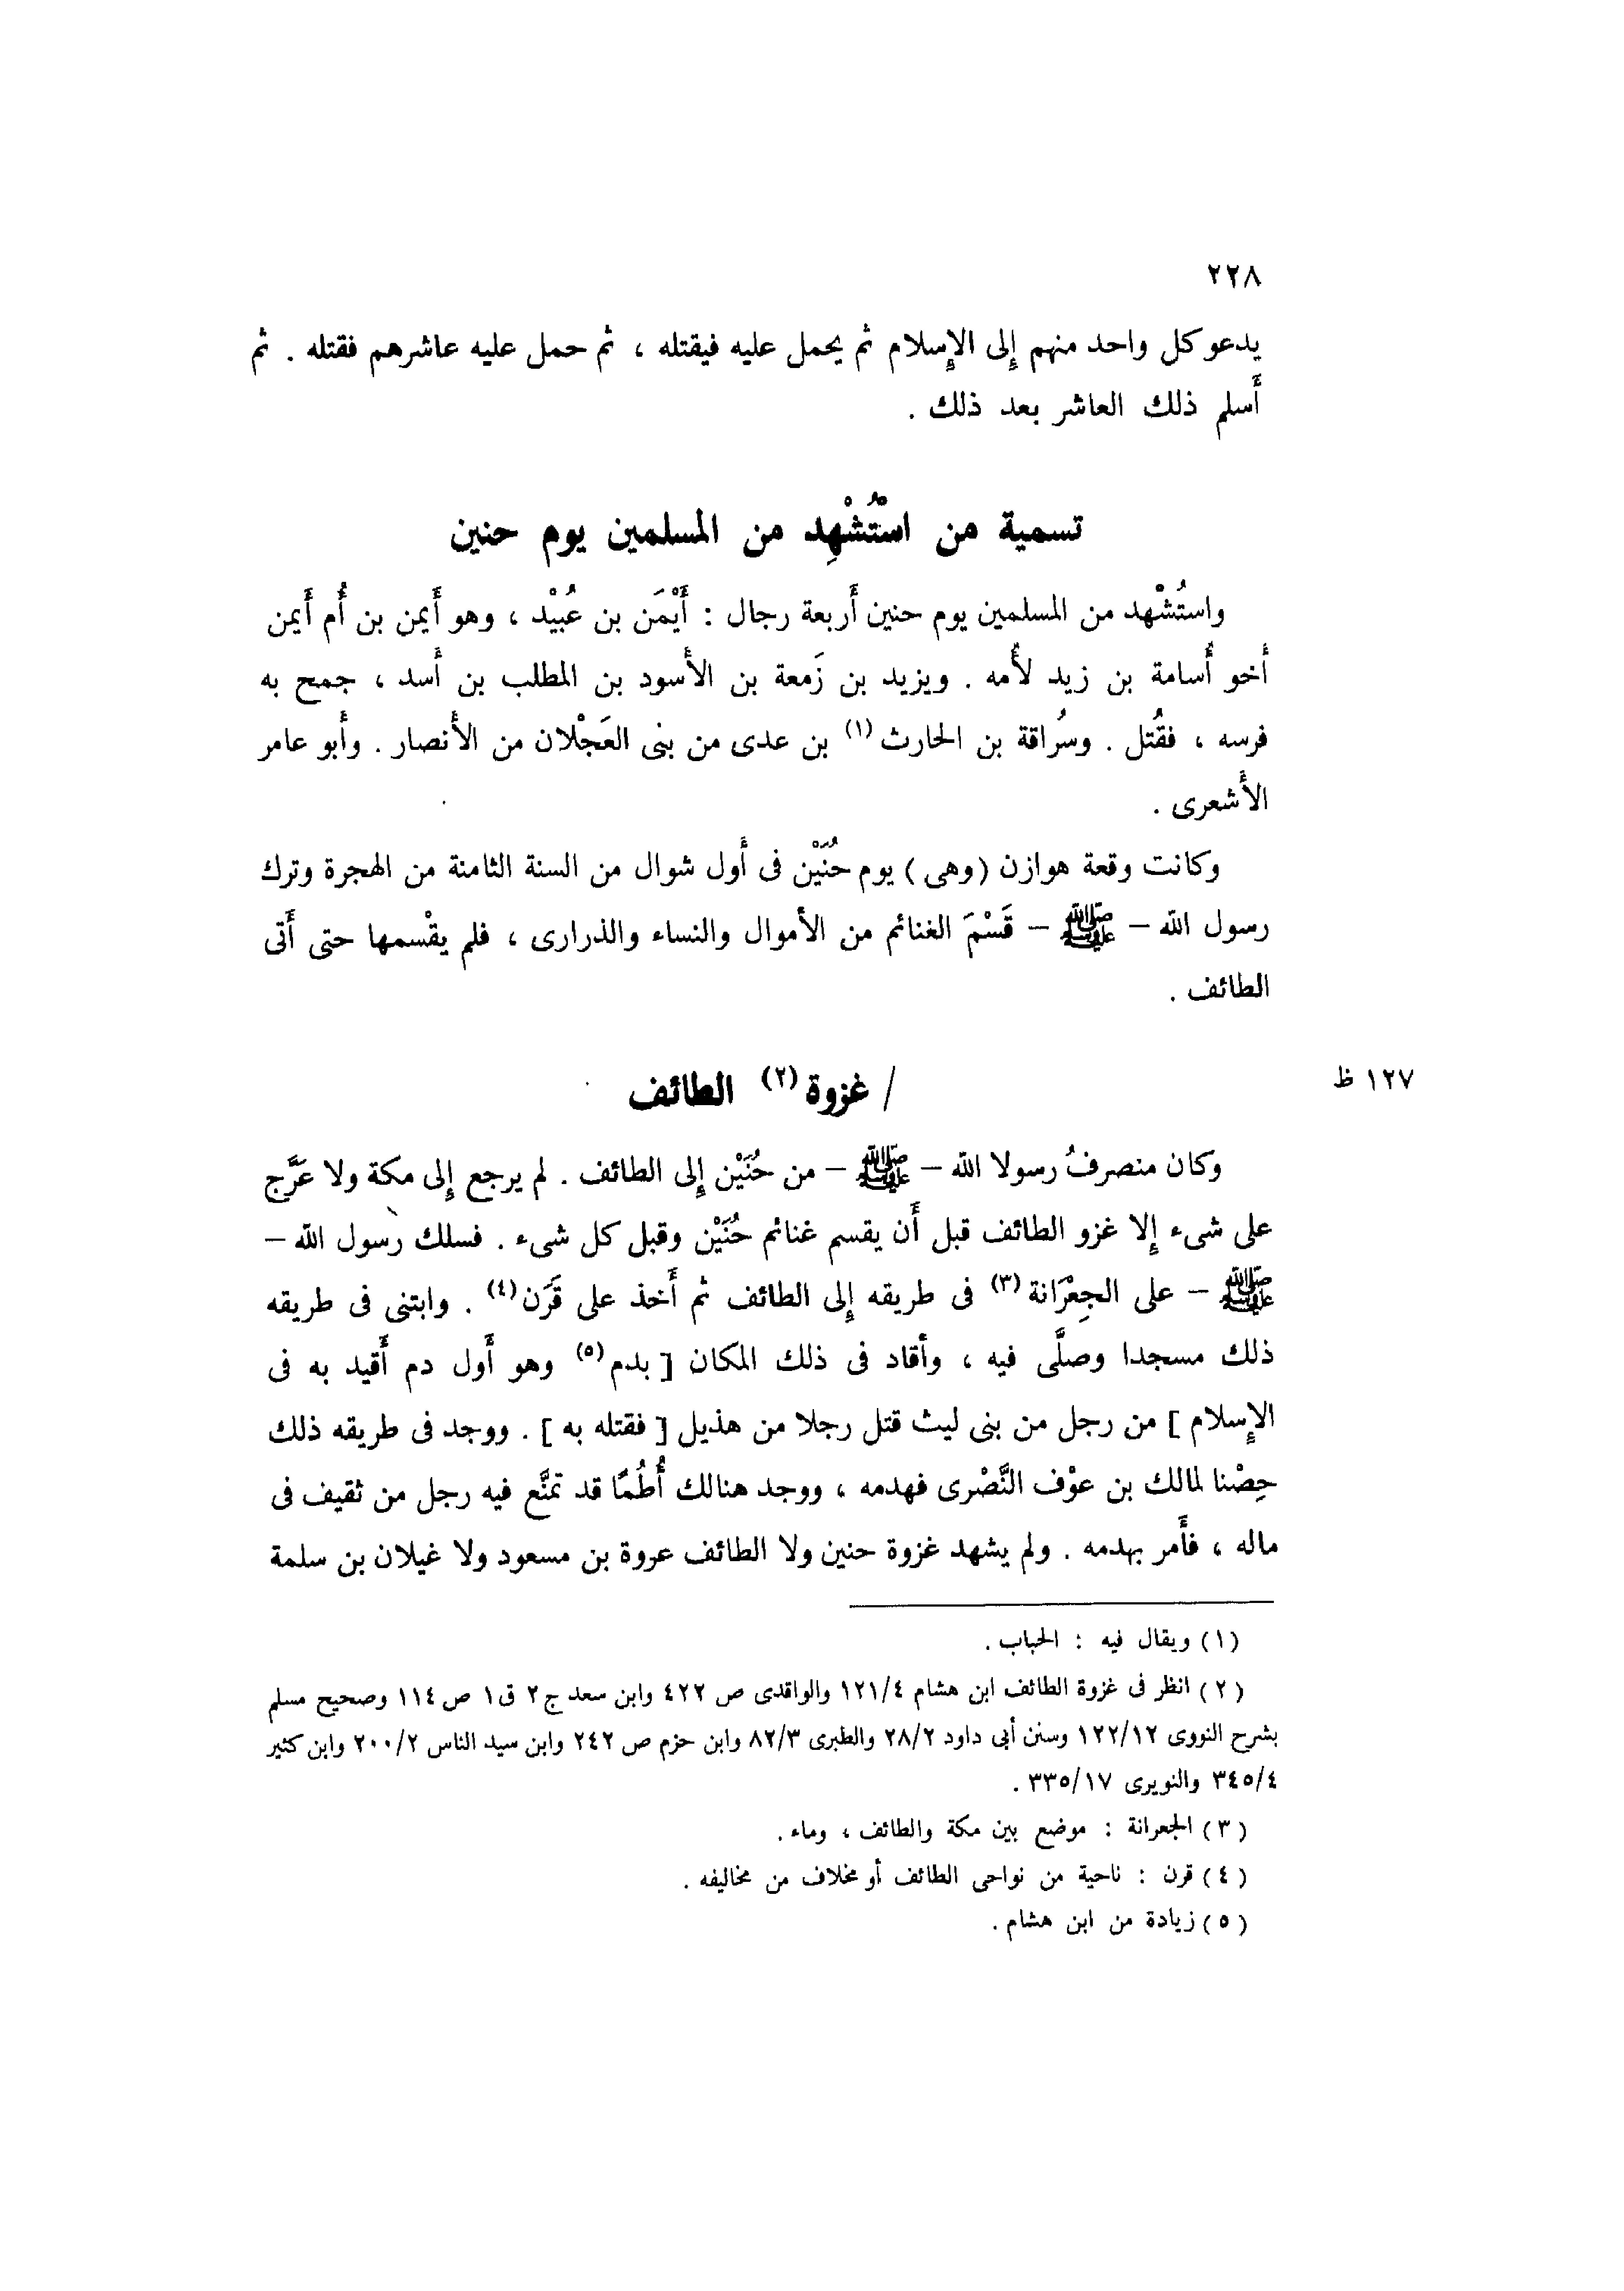 ٢٢٨
يدعو كل واحد منهم إلى الإِسلام ثم يحمل عليه فيقتله ، ثم حمل عليه عاشرهم فقتله . ثم
أَسلم ذلك العاشر بعد ذلك .
تسمية من اسْتُشْهِد من المسلمين يوم حنين
واستُشْهد من المسلمين يوم حنين أَربعة رجال : أَيْمَن بن عُبيْد ، وهو أَيمن بن أُم أَيمن
أَخو أُسامة بن زيد لأُمه . ويزيد بن زَمعة بن الأَسود بن المطلب بن أَسد ، جمح به
فرسه ، فقُتل . وسُراقة بن الحارث (١) بن عدى من بنى العَجْلان من الأَنصار . وأَبو عامر
الأَشعرى .
وكانت وقعة هوازن (وهى) يوم حُنَيْن فى أَول شوال من السنة الثامنة من الهجرة وترك
رسول الله – ﷺ – قَسْمَ الغنائم من الأموال والنساء والذرارى ، فلم يقْسمها حتى أَتى
الطائف .
/ غزوة (٢) الطائف
١٢٧ ظ
وكان منصرفُ رسولا الله – ﷺ – من حُنَيْن إِلى الطائف . لم يرجع إِلى مكة ولا عَرَّج
على شىء إِلا غزو الطائف قبل أَن يقسم غنائم حُنَيْن وقبل كل شىء . فسلك رسول الله –
ﷺ – على الجِعْرَانة (٣) فى طريقه إِلى الطائف ثم أَخذ على قَرَن (٤) . وابتنى فى طريقه
ذلك مسجدا وصلَّى فيه ، وأقاد فى ذلك المكان [ بدم (٥) وهو أَول دم أَقيد به فى
الإِسلام ] من رجل من بنى ليث قتل رجلا من هذيل [ فقتله به ] . ووجد فى طريقه ذلك
حِصْنا لمالك بن عوْف النَّصْرى فهدمه ، ووجد هنالك أُطُمًا قد تمنَّع فيه رجل من ثقيف فى
ماله ، فأَمر بهدمه . ولم يشهد غزوة حنين ولا الطائف عروة بن مسعود ولا غيلان بن سلمة
(١) ويقال فيه : الحباب .
(٢) انظر فى غزوة الطائف ابن هشام ١٢١/٤ والواقدى ص ٤٢٢ وابن سعد ج ٢ ق ١ ص ١١٤ وصحيح مسلم
بشرح النووى ١٢٢/١٢ وسنن أبى داود ٢٨/٢ والطبرى ٨٢/٣ وابن حزم ص ٢٤٢ وابن سيد الناس ٢٠٠/٢ وابن كثير
٣٤٥/٤ والنويرى ٣٣٥/١٧ .
(٣) الجعرانة : موضع بين مكة والطائف ، وماء .
(٤) قرن : ناحية من نواحى الطائف أو مخلاف من مخاليفه .
(٥) زيادة من ابن هشام .